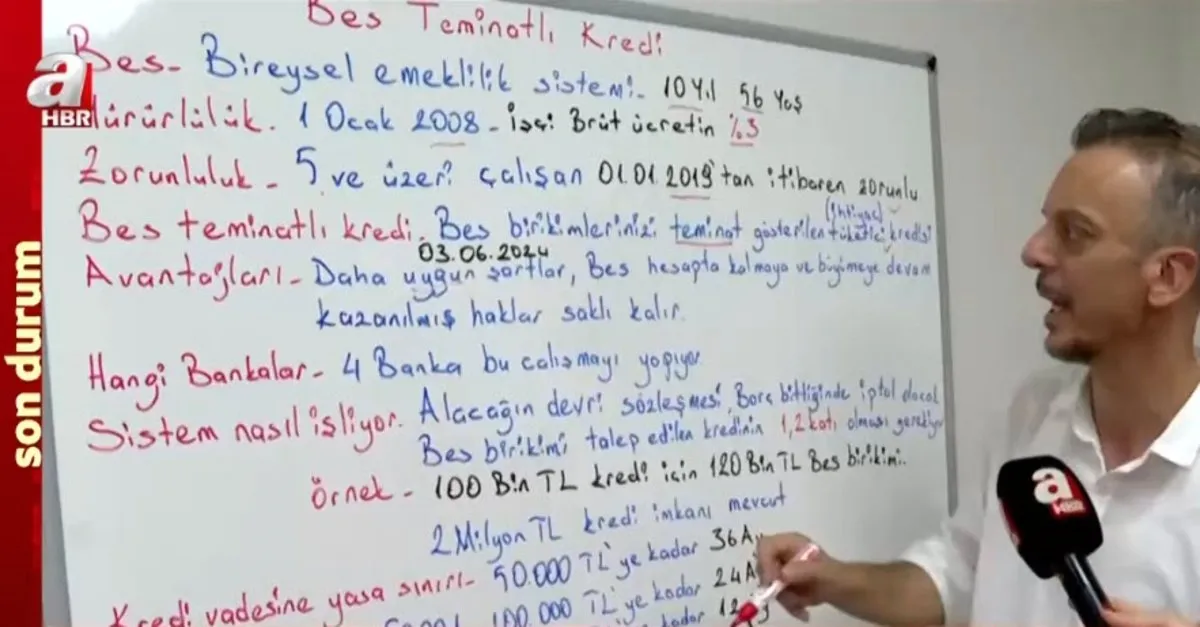 Bes Teminatlı Kredi
Bes- Bireysel emeklilik sistemi- 10 Yıl 56 Yaş
ürürlülük. 1 Ocak 2008 - işçi Brüt ücretin %3
Zorunluluk - 5 ve üzeri çalışan 01.01.2019'tan itibaren zorunlu
(ihtiyaç)
Bes teminatlı kredi. Bes birikimlerinizi teminat gösterilen tüketici kredisi
03.06.2024
Avantajları - Daha uygun şartlar, Bes hesapta kalmaya ve büyümeye devam
kazanılmış haklar saklı kalır.
Hangi Bankalar - 4 Banka bu çalışmayı yapıyor.
Sistem nasıl işliyor. Alacağın devri sözleşmesi. Borç bittiğinde iptal olacak
Bes birikimi talep edilen kredinin 1,2 katı olması gerekiyor
örnek - 100 Bin TL kredi için 120 Bin TL Bes birikimi.
2 Milyon TL kredi imkanı mevcut
Kredi vadesine yasa sınırı - 50.000 TL'ye kadar 36 Ay
100.000 TL'ye kadar 24 A
kadar 12
a
HBR
son durum
a
HBR